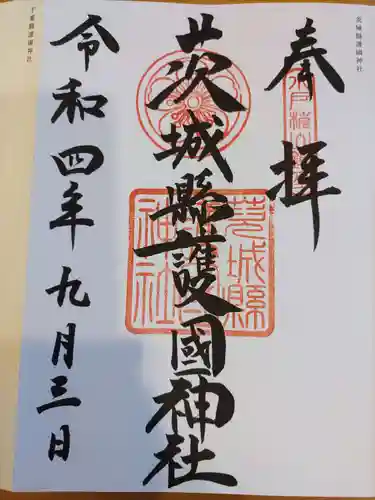 茨城縣護國神社
奉拝
水戸桜山
茨城縣護國神社
茨城縣護國神社
令和四年九月三日
千葉縣護國神社